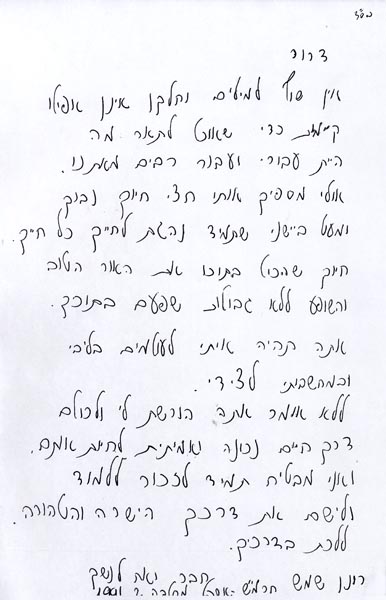 בס"ד
דרור
אין סוף למילים וחלקן אינן אפילו
קיימות כדי שאוכל לתאר מה
היית עבורי ועבור רבים מאתנו.
אולי מספיק אותו חצי חיוך נבוך
ומעט ביישני שתמיד נהגת לחייך כל חייך.
חיוך שהכיל בתוכו את האור הטוב
והשופע ללא גבולות שפעם בתוכך.
אתה תהיה איתי לעולמים בליבי
ובמחשבותי לצידי.
ללא אומר אתה הורשת לי ולכולם
דרך חיים נכונה ואמיתית לחיות אותם.
ואני מבטיח תמיד לזכור ללמוד
וליישם את דרכך הישרה והטהורה.
ללכת בדרכיך.
חבר ואח לנשק
רינן שמש